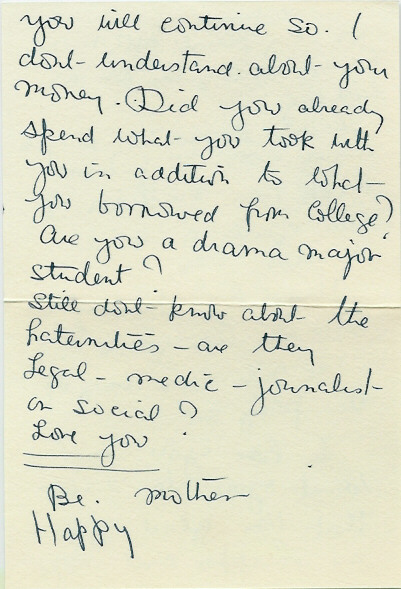 you will continue so. I
dont understand about your
money. Did you already
spend what you took with
you in addition to what
you borrowed from College?
Are you a drama major
student?
Still dont know about the
fraternities - are they
Legal - medic - journalist
or social?
Love you
Be. Mother
Happy